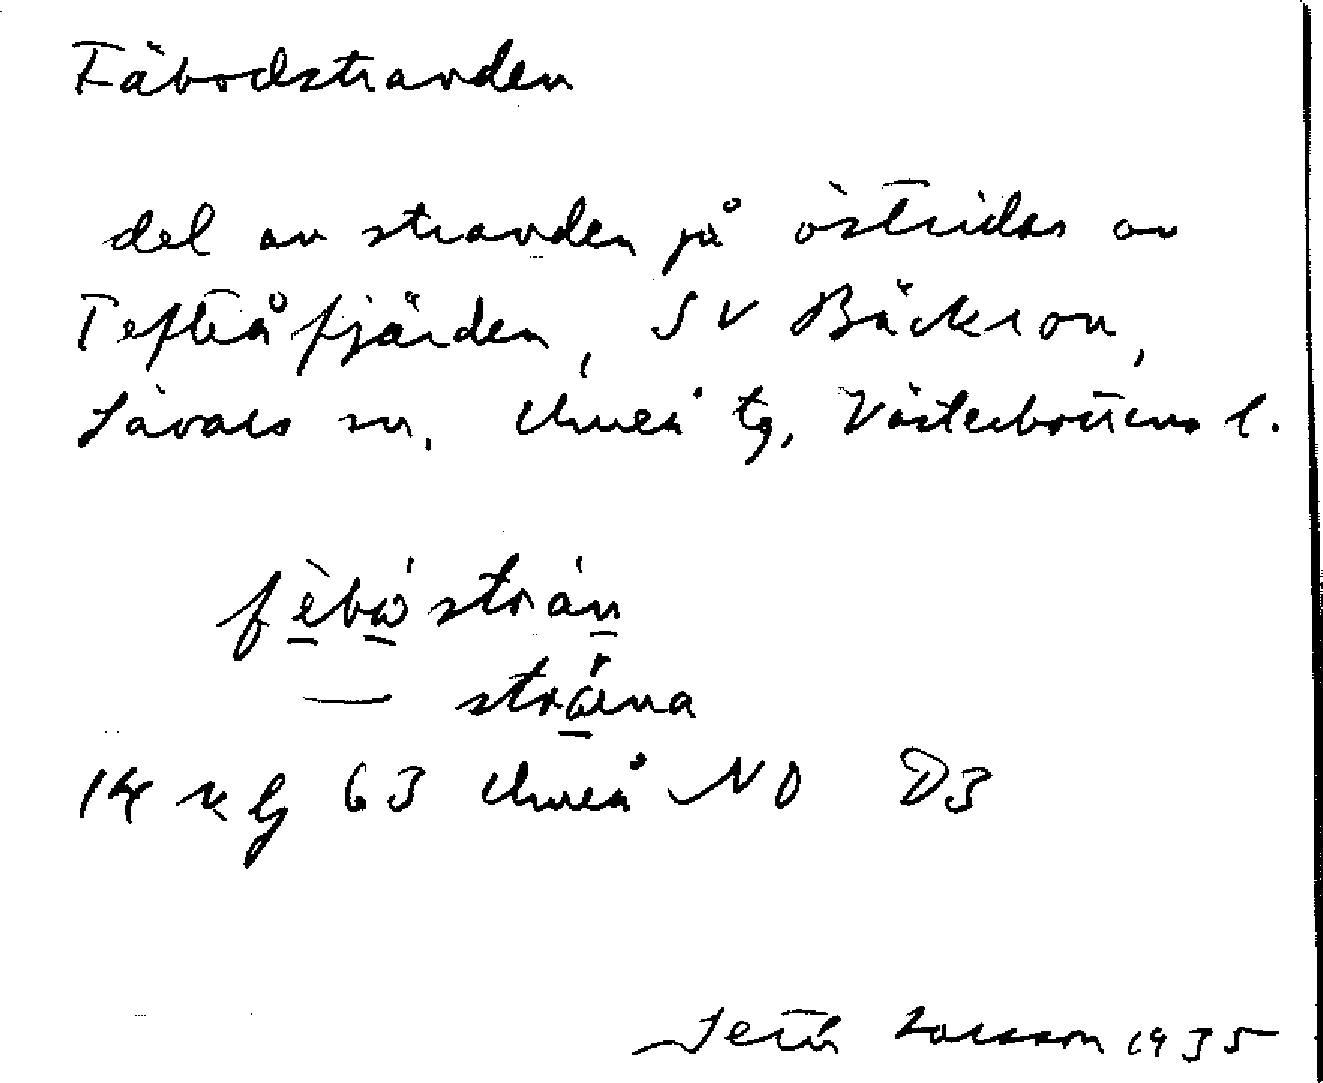 Fäbodstranden
del av stranden på östsidan av
Tefteåfjärden, SV Bäckson,
Sävars sn, Umeå tg, Västerbottens l.
fèbó strán
— strána
63 Umeå NO D3
Seth Larsson 1935